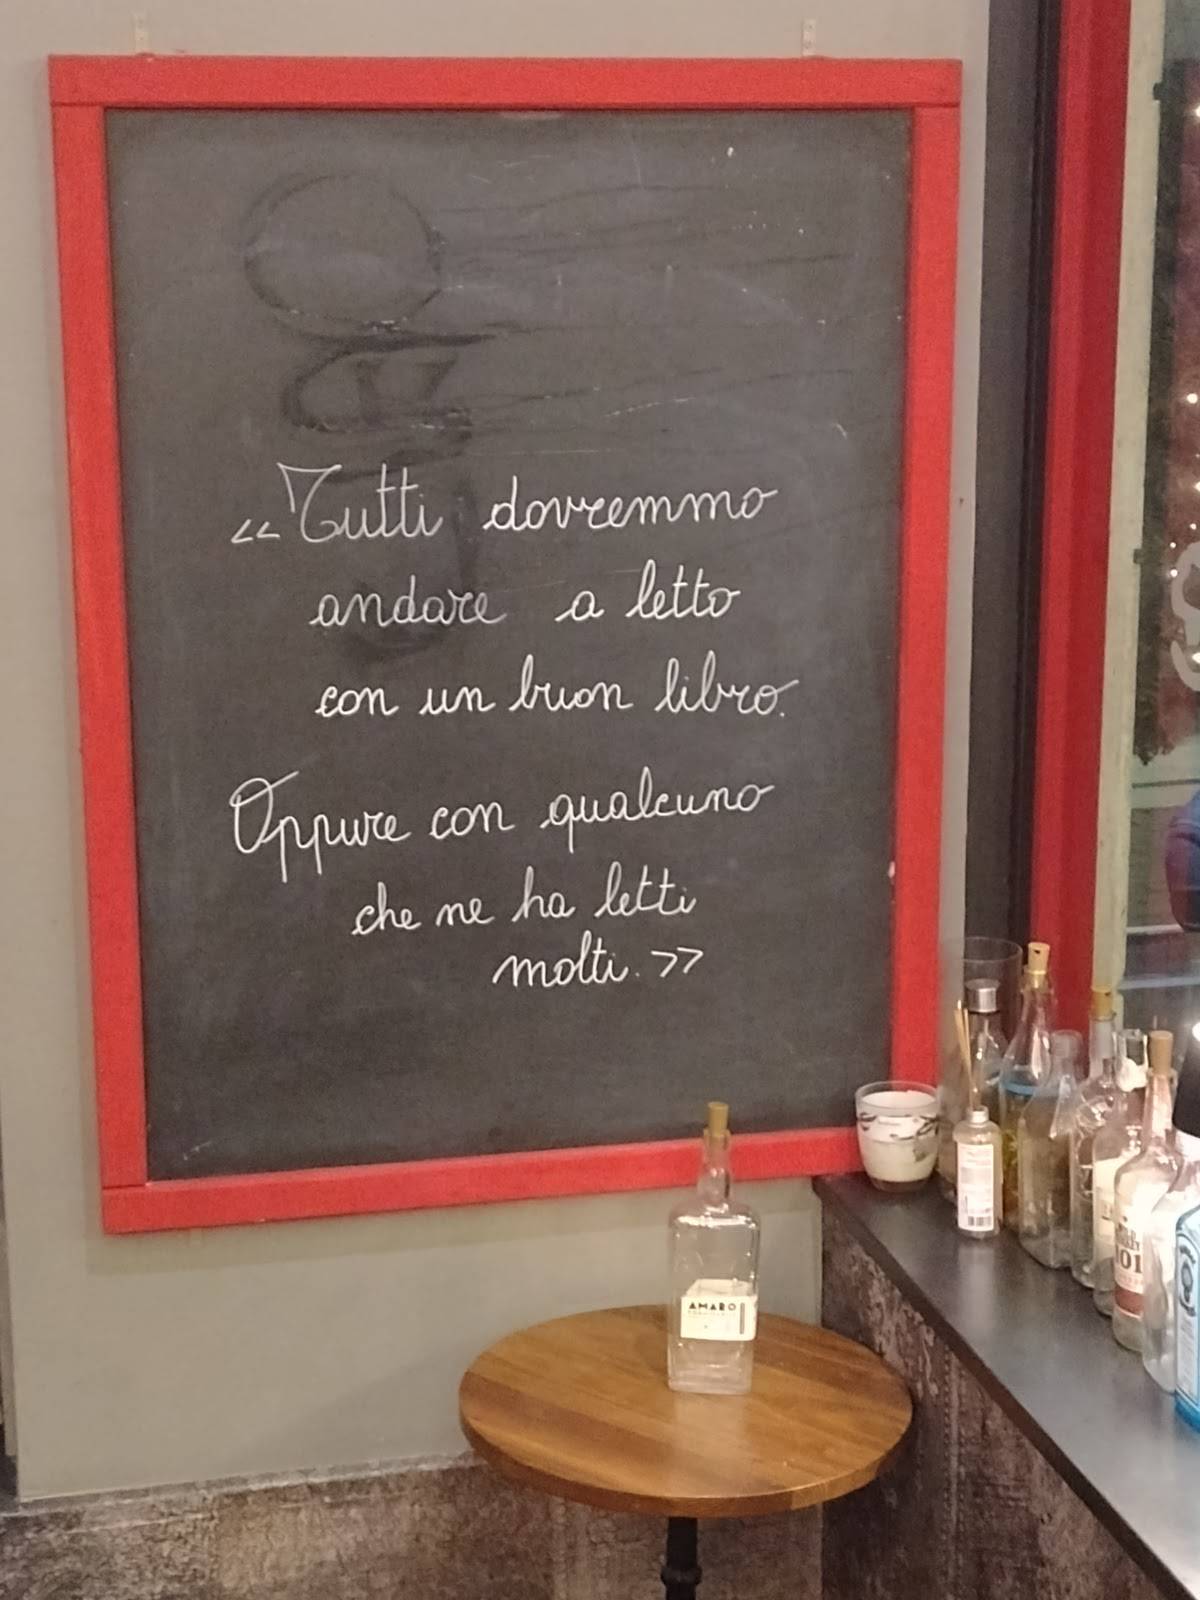 << Tutti dovremmo
andare a letto
con un buon libro.
Oppure con qualcuno
che ne ha letti
molti. >>
AMARO
101